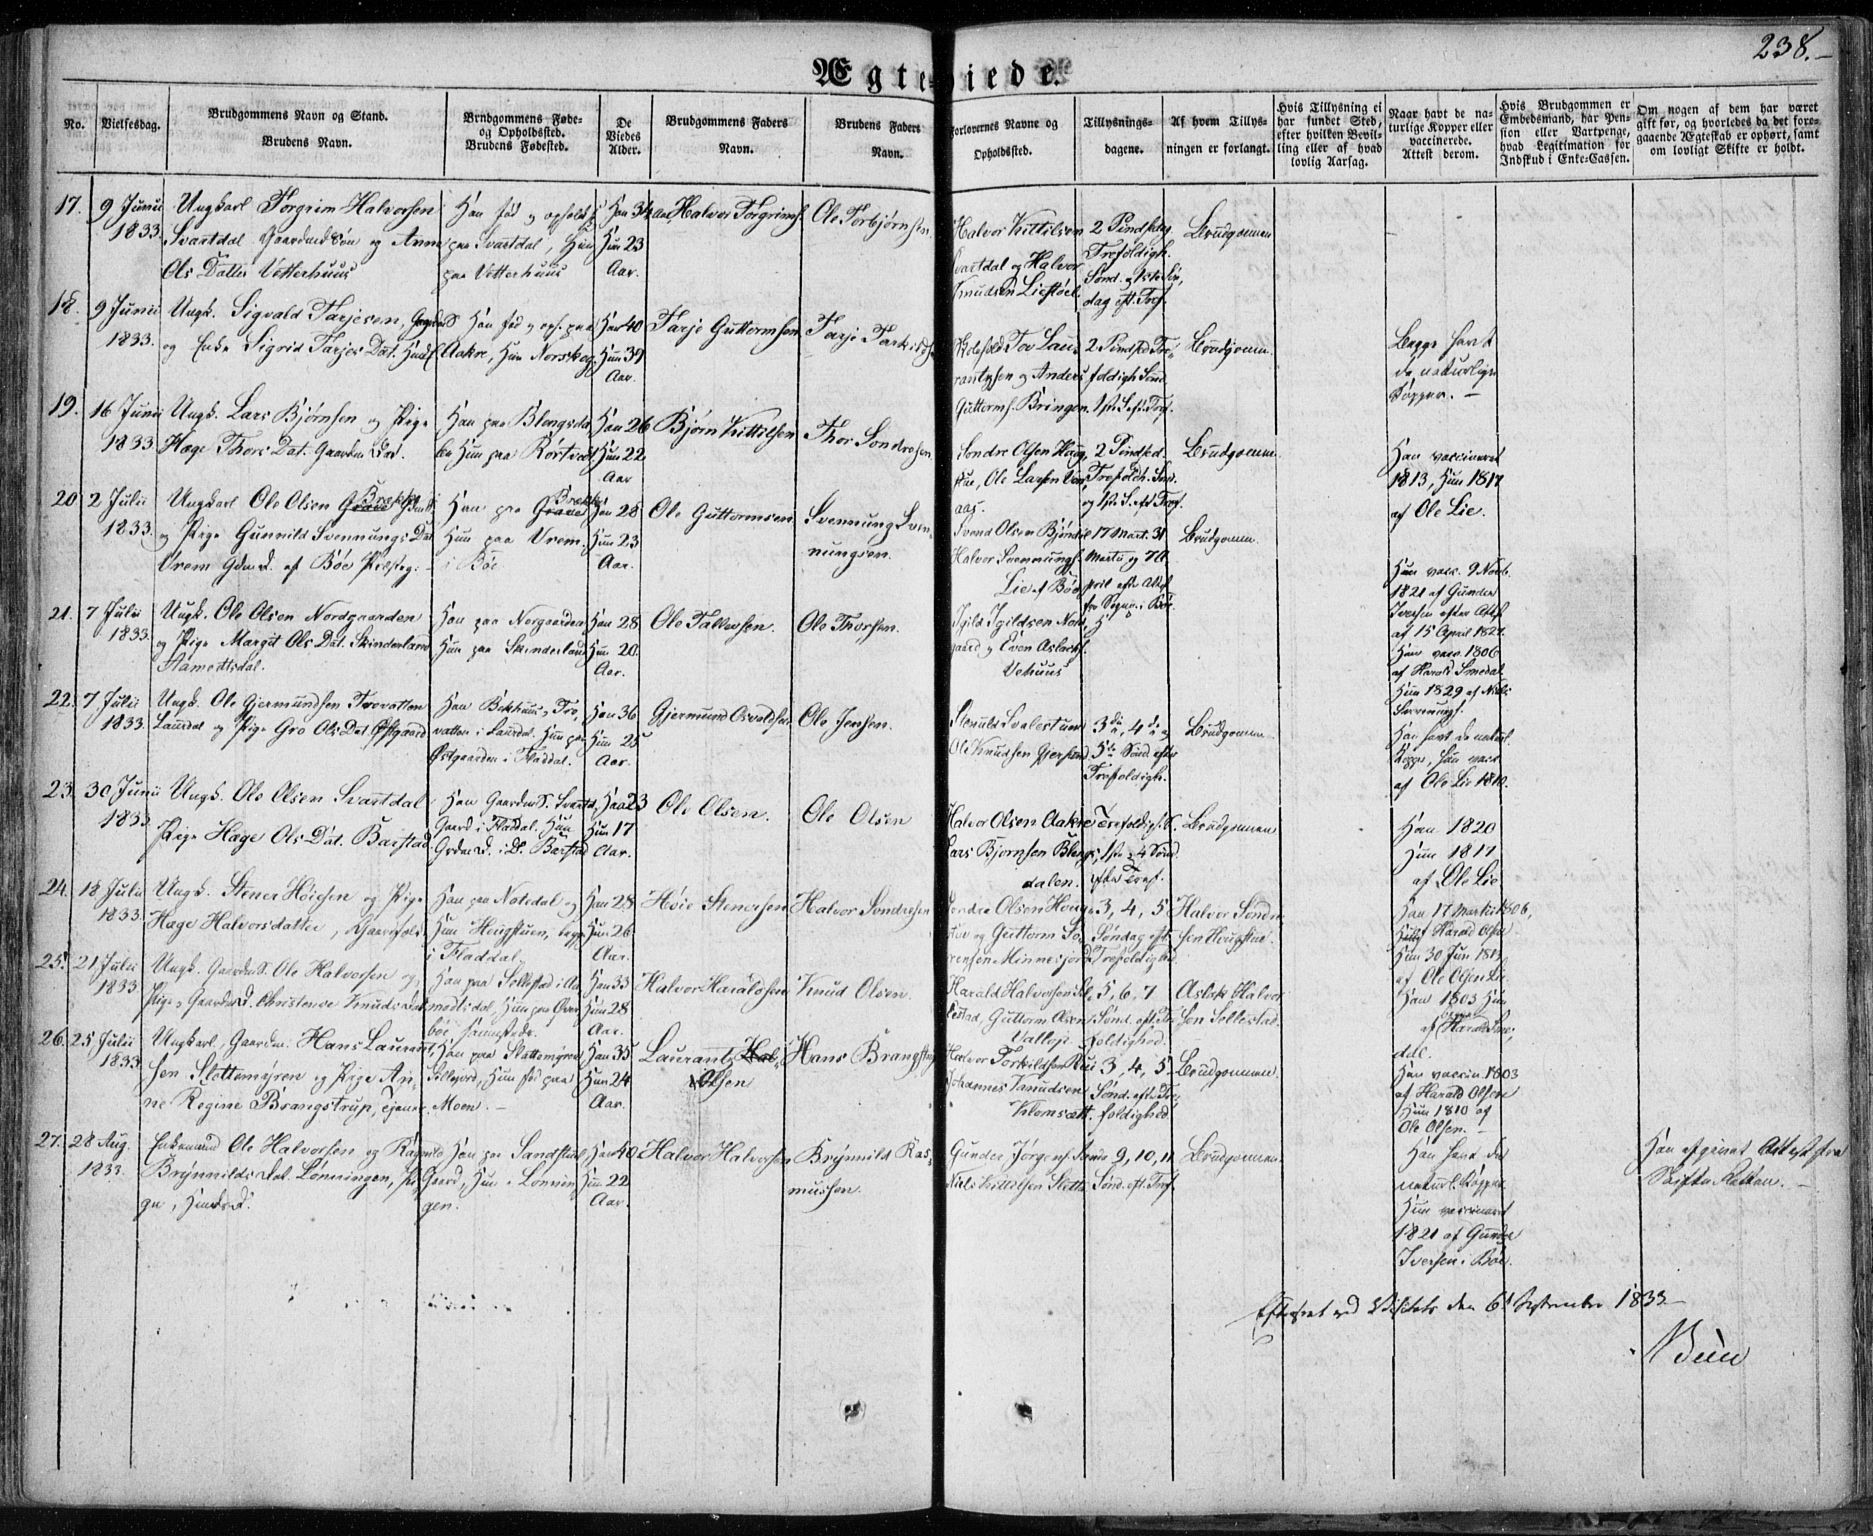 238.
Ægteviede.
No.
Vielsesdag.
Brudgommens Navn og Stand.
Brudens Navn.
Brudgommens Føde-
og Opholdssted.
Brudens Fødested.
De
Viedes
Alder.
Brudgommens Faders
Navn.
Brudens Faders
Navn.
Forlovernes Navne og
Opholdssted.
Tillysnings-
dagene.
Af hvem Tillys-
ningen er forlangt.
Hvis Tillysning ei
har fundet Sted,
efter hvilken Bevil-
ling eller af hvad
lovlig Aarsag.
Naar havt de na-
turlige Kopper eller
vaccinerede.
Attest derom.
Hvis Brudgommen er
Embedsmand, har Pen-
sion eller Vartpenge,
hvad Legitimation for
Indskud i Enke-Cassen.
Om nogen af dem har været
gift før, og hvorledes da det fore-
gaaende Ægteskab er ophørt, samt
om lovligt Skifte er holdt.
17.
9 Junii
1833.
Ungkarl Torgrim Halvorsen
Svartdal Gaardmd Søn og Anne
Ols Datter Vetterhuus
Han fød og opholds
paa Svartdal, Hun
paa Vetterhuus
Han 34 aar
Hun 23
Aar.
Halvor Torgrims.
Ole Torbjørnsen.
Halvor Kittilsen
Svartdal og Halvor
Knudsen Liestøel.
2 Pindsedag
Trefoldigh.
Sønd. og 1ste Søn,
dag eft. Tref.
Brudgommen
18.
9 Junii
1833.
Ungk. Sigvald Tarjesen,
og Enke Sigrid Tarjes Dat.
Han fød og oph. paa
Aakre, Hun Norskog
Han 40
Hun 39
Aar.
Tarje Guttormsen
Tarje Tarkildsen
Tov Lau
rantzsen og Anders
Guttorms. Bringen.
2 Pindsed. Tre,
foldigh. Sønd.
1ste S. eft. Tref.
Brudgomm.
Begge havt
de naturlige
Kopper. –
19.
16 Junii
1833.
Ungk. Lars Bjørnsen og Pige
Hage Thors Dat. Gaardm. Dat.
Han paa Blengsda,
len Hun paa Kortvedt
Han 26
Hun 22
Aar
Bjørn Kittilsen
Thor Sondresen
Sondre Olsen Haug,
stue, Ole Larsen
aas.
2 Pindsed.
Trefoldh. Sønd.
og 1ste S. eft. Tref.
Brudgomm.
Han vaccineret
1813, Hun 1817
af Ole Lie.
20
2 Julii
1833.
Ungkarl Ole Olsen Grave Brekke
og Pige Gunnild Svennungs Dat
Vrem Gdm. D. af Bøe Præsteg.
Han paa Grave Brekke
Hun paa Vrem
i Bøe
Han 28
Hun 23
Aar.
Ole Guttormsen
Svennung Sven,
nungsen.
Svend Olsen
Halvor Svennungs.
Lie af Bøe
17 Mart. 31
Martii og 7 A,
pril efter Attest
fra Sogn. i Bøe.
Brudgomm.
Hun vacc. 9 Novb.
1821 af Gunder
Iversen efter Attest
af 15 April 1827.
21.
7 Julii
1833.
Ungk. Ole Olsen Nordgaarden
og Pige Margit Ols Dat. Skinderland
Aamodtsdal.
Han paa Norgaarden
Hun paa Skinderland
Han 28
Hun 20.
Aar.
Ole Tallevsen.
Ole Thorsen.
Igild Igildsen Nord,
gaard og Even Aslachs.
Vehuus
Han vacc. 1806
af Harald Smedal
Hun 1829 af Niels
Svennungs.
22.
7 Julii
1833.
Ungk. Ole Gjermundsen Trovatten
Laurdal og Pige Gro Ols Dat. Østgaard
Han Bekhuus, Tro,
vatten i Laurdal. Hun paa
Østgaarden i Fladdal.
Han 36
Hun 25
Aar.
Gjermund Osvaldsen
Ole Jensen.
Svalestuen
Ole Knudsen
3die, 4de og
5te Sønd. efter
Trefoldigh.
Brudgomm.
Han havt de naturl.
Kopper, Hun vacc.
af Ole Lie 1810.
23.
30 Junii
1833.
Ungk. Ole Olsen Svartdal
Pige Hage Ols Dat. Barstad
Han Gaardm. S. Svartd.
Gaard i Fladdal. Hun
Grdm. D. i Do. Barstad
Han 23
Hun 17
Aar.
Ole Olsen.
Ole Olsen
Halvor Olsen Aakre
Lars Bjørnsen Blengs,
dalen.
Trefoldigh. S.
1ste, 4 Sønd.
efter Tref.
Brudgommen
Han 1820
Hun 1817
af Ole Lie
24.
18 Julii
1833.
Ungk. Stener Høiesen og Pige
Hage Halvorsdatter, Gaardfolk
Han paa Notedal og
Hun Hougstuen, begge
i Fladdal
Han 28
Hun 26.
Aar.
Høie Stenersen
Halvor Sondresen
Sondre Olsen Houg,
stue og Guttorm So,
rensen Minnesjord
3, 4, 5
Søndag eft.
Trefoldighed
Halvor Sondre
sen Hougstue.
Han 17 Martii 1806,
af Harald Olsen
Hun 30 Jun 1817
af Ole Olsen Lie
25.
21 Julii
1833.
Ungk. Gaardm S. Ole Halvorsen og
Pige, Gaardm D. Christense Knuds Dat.
Han paa Sellestad i Aa,
modtsdal, Hun paa Over,
bøe sammestedr.
Han 33
Hun 28
Aar.
Halvor Haraldsen
Knud Olsen.
Harald Halvorsen Sel,
lestad, Guttorm Olsen
5, 6, 7
Sønd. eft. Tre,
foldighed.
Aslak Halvor
sen Sellestad.
Han 1803 Hun
af Harald Sme,
dal.
26.
25 Julii
1833.
Ungkarl, Gaardm. Hans Laurant,
sen Slettemyren og Pige An,
ne Regine Brangstrup, tjener
Han paa Slettemyren
Sillejord, Hun fød paa
Moen. –
Han 35
Hun 24
Aar.
Laurantz
Olsen
Hans Brangstrup
Halvor Torkildsen
Johannes Knudsen
3, 4, 5
Sønd. efter Tre,
foldighed.
Brudgommen.
Han vaccin. 1803
af Harald Olsen
Hun 1810 af
Ole Olsen. –
27.
28 Aug.
1833.
Enkemand Ole Halvorsen og Ragnild
Brynnilds Dat. Lønningen, Pi
ge,
Han paa Sandstul,
Gaard, Hun i Lønnin
gen.
Han 40
Hun 22
Aar.
Halvor Halvorsen
Brynnild Ras,
mussen.
Gunder Jørgens.
Niels Kittilsen Slette
9, 10, 11
Sønd. eft. Tref.
Brudgommen
Han havt de
naturl. Kopper.
Hun vaccineret
1821 af Gunder
Iversen i Bøe.
Han afgivet Attest fra
Skifte Retten. –
Efterseet ved Visitats den 6t September 1833 –